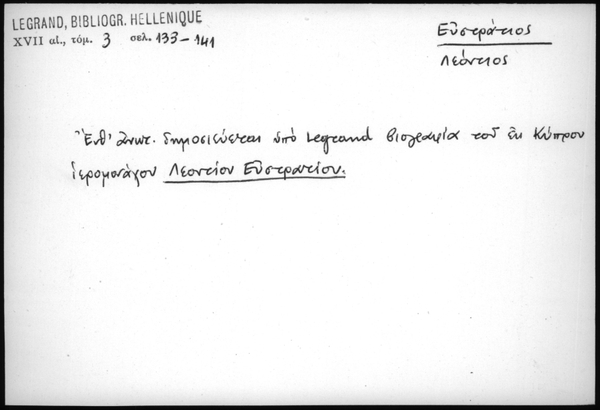 LEGRAND, BIBLIOGR. HELLENIQUE
XVII αἰ., τόμ. 3 σελ. 133-141
Εὐστράτιος
Λεόντιος
Ἔνθ' ἀνωτ. δημοσιεύεται ὑπὸ Legrand βιογραφία τοῦ ἐκ Κύπρου
ἱερομονάχου Λεοντίου Εὐστρατίου.